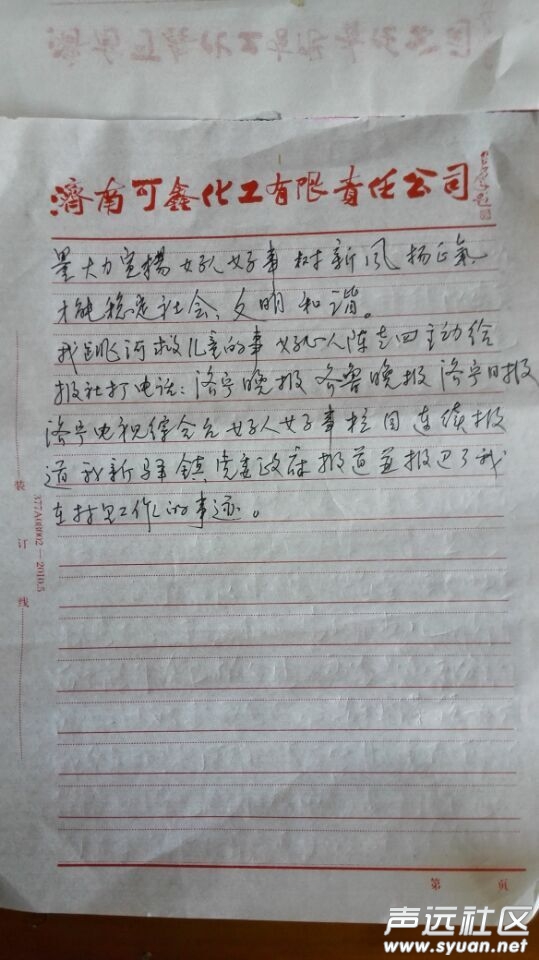 濟南可鑫化工有限責任公司
量大力宣揚好人好事树新风扬正氣
才能稳定社会、文明和谐。
我跳河救儿童的事好心人陈志四主动给
报社打电话：济宁晚报 齐鲁晚报 济宁日报
济宁电视综合台好人好事栏目连续报
道我新驿镇党委政府报道并报
在村里工作的事迹。
装
订
线
377A08002—2010.5
第 页
声远社区
www.syuan.net